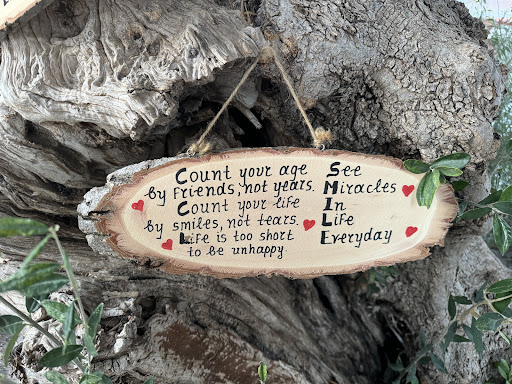 Count your age
by friends, not years.
Count your life
by smiles, not tears.
Life is too short
to be unhappy.
See
Miracles
In
Life
Everyday